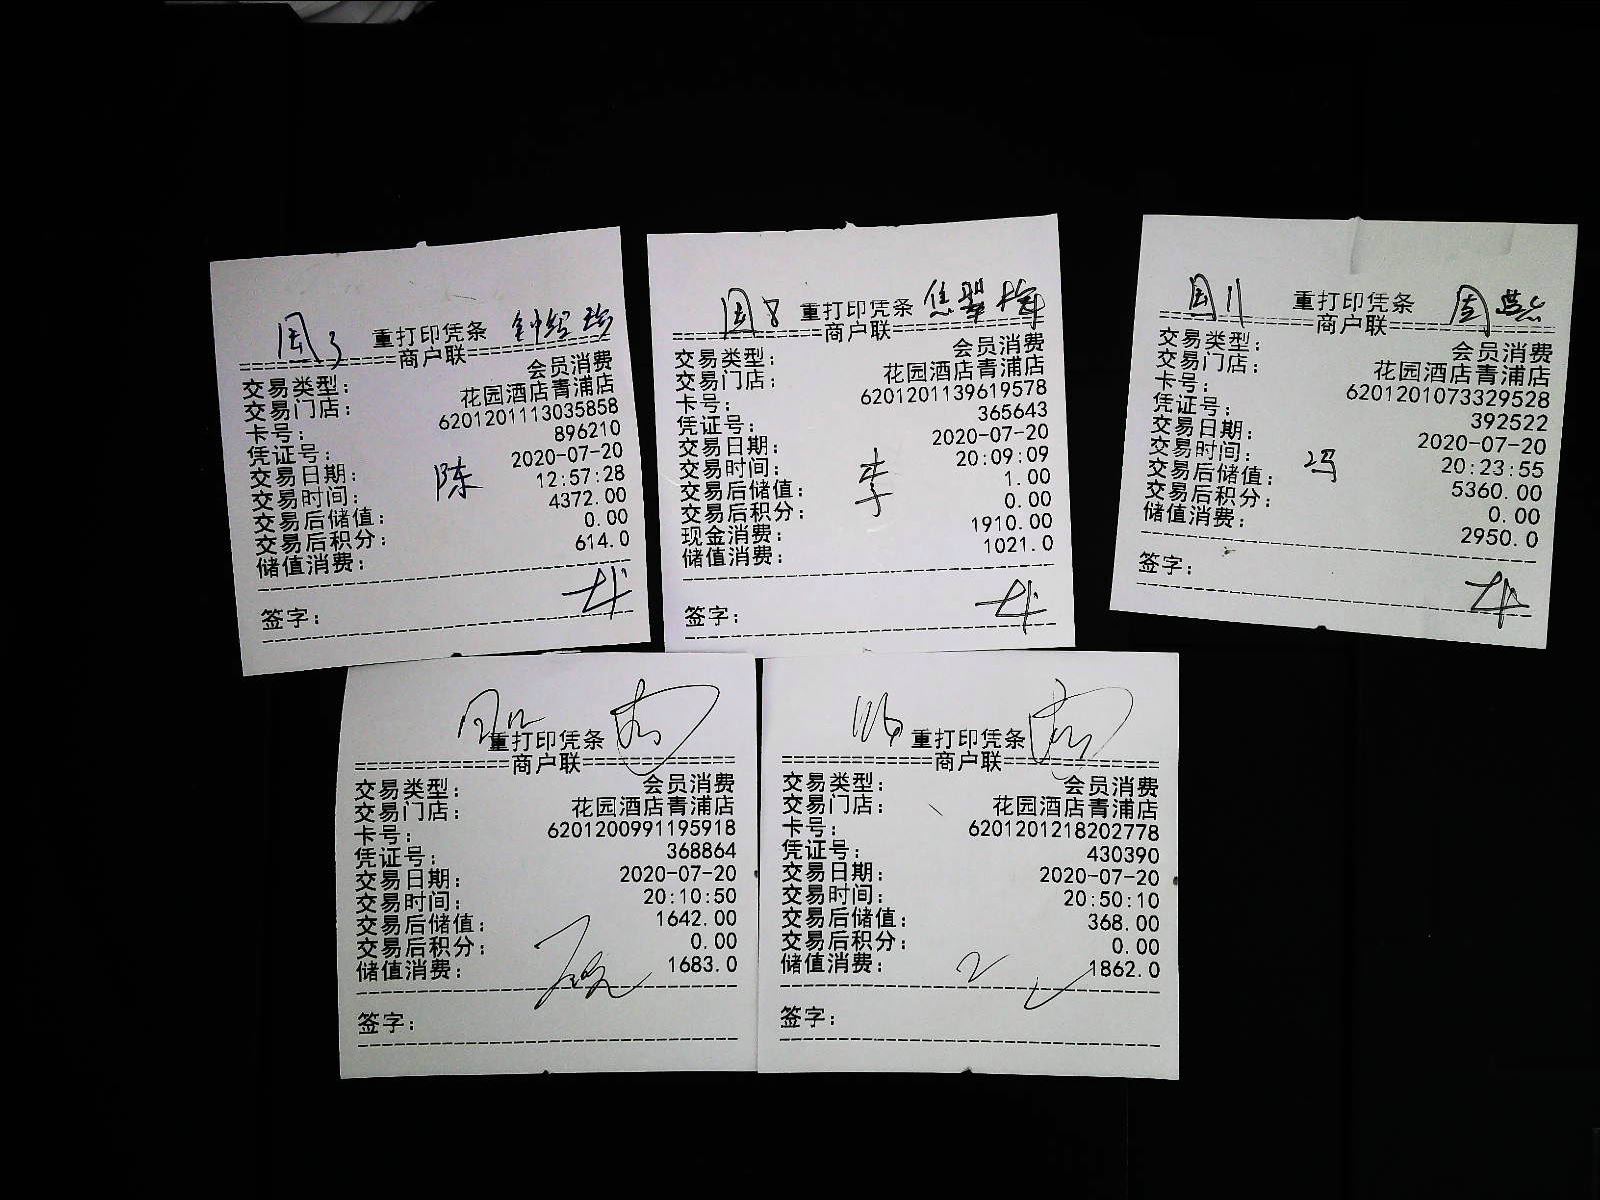 周3 重打印凭条
商户联
交易类型： 会员消费
交易门店： 花园酒店青浦店
卡号： 6201201113035858
凭证号： 896210
交易日期： 2020-07-20
交易时间： 12:57:28
交易后储值： 4372.00
交易后积分： 0.00
储值消费： 614.0
陈
签字：
周8 重打印凭条 焦翠梅
商户联
交易类型： 会员消费
交易门店： 花园酒店青浦店
卡号： 6201201139619578
凭证号： 365643
交易日期： 2020-07-20
交易时间： 20:09:09
交易后储值： 1.00
交易后积分： 0.00
现金消费： 1910.00
储值消费： 1021.0
李
签字：
周11 重打印凭条 周燕
商户联
交易类型： 会员消费
交易门店： 花园酒店青浦店
卡号： 6201201073329528
凭证号： 392522
交易日期： 2020-07-20
交易时间： 20:23:55
交易后储值： 5360.00
交易后积分： 0.00
储值消费： 2950.0
冯
签字：
重打印凭条
商户联
交易类型： 会员消费
交易门店： 花园酒店青浦店
卡号： 6201200991195918
凭证号： 368864
交易日期： 2020-07-20
交易时间： 20:10:50
交易后储值： 1642.00
交易后积分： 0.00
储值消费： 1683.0
签字：
116 重打印凭条
商户联
交易类型： 会员消费
交易门店： 花园酒店青浦店
卡号： 6201201218202778
凭证号： 430390
交易日期： 2020-07-20
交易时间： 20:50:10
交易后储值： 368.00
交易后积分： 0.00
储值消费： 1862.0
签字：